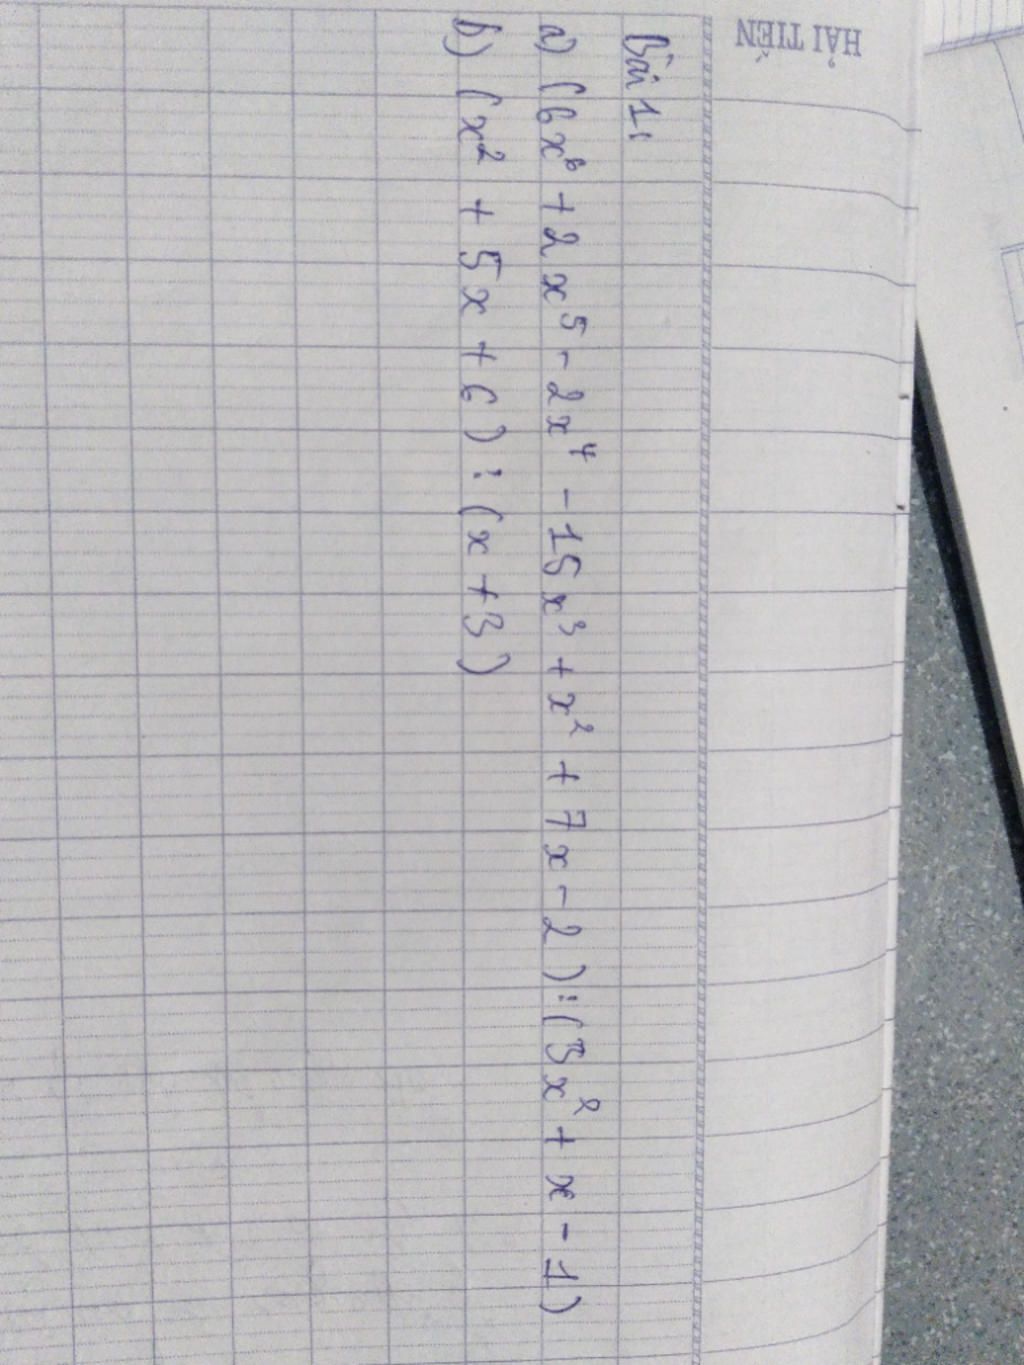 HẢI TIẾN
Bài 1:
a) (6x⁶ + 2x⁵ - 2x⁴ - 15x³ + x² + 7x - 2) : (3x² + x - 1)
b) (x² + 5x + 6) : (x + 3)